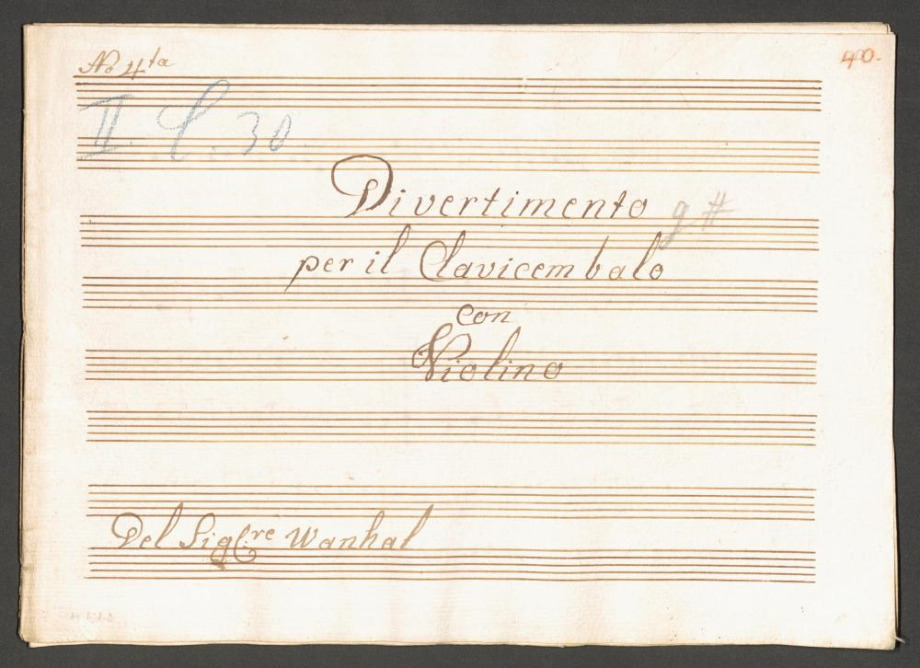 No 4ta
40.
II. C. 30
Divertimento g #
per il Clavicembalo
con
Violino
Del Sigre Wanhal